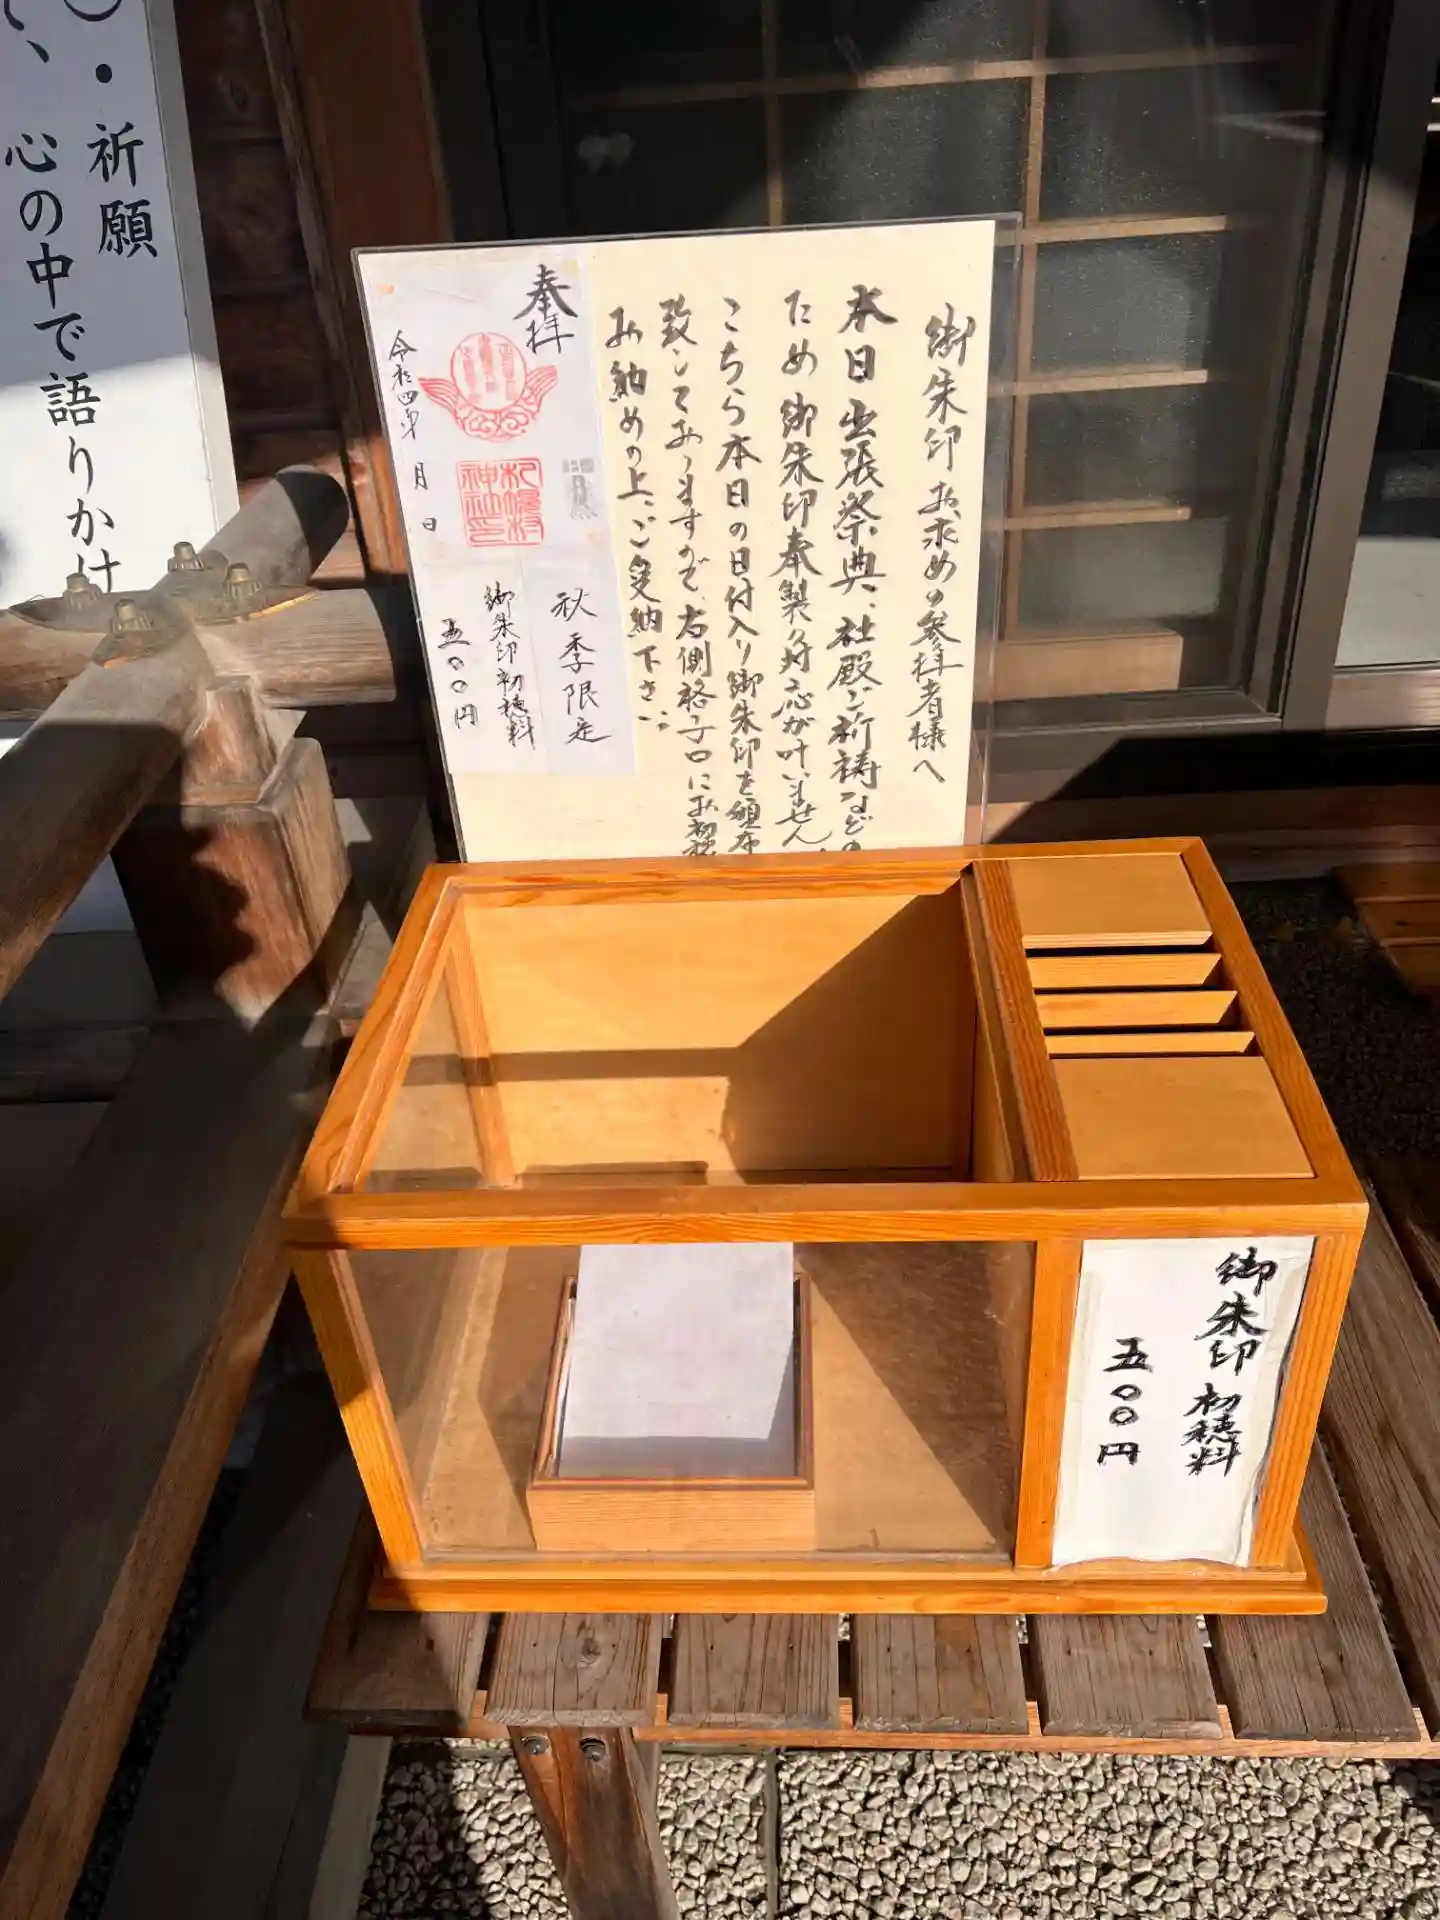 ・祈願
心の中で語りかけ
御朱印お求めの参拝者様へ
本日出張祭典、社殿ご祈祷などの
ため御朱印奉製対応が叶いません
こちら本日の日付入り御朱印を頒布
致しておりますので、右側格子口にお初穂
お納めの上、ご受納下さい。
奉拝
令和四年 月 日
杉場杉
神社印
秋季限定
御朱印初穂料
五〇〇円
御朱印初穂料
五〇〇円